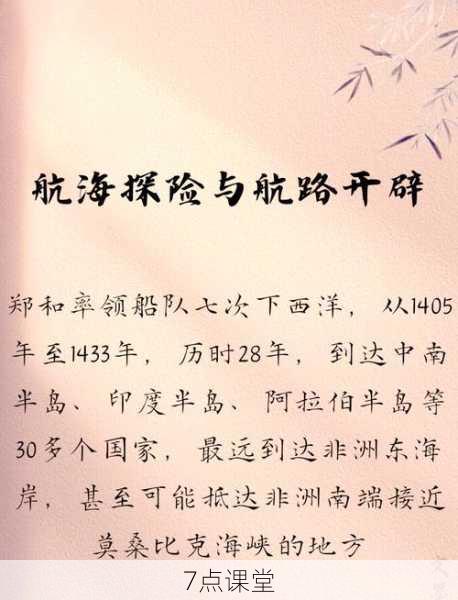 航海探险与航路开辟
郑和率领船队七次下西洋，从1405
年至1433年，历时28年，到达中南
半岛、印度半岛、阿拉伯半岛等
30多个国家，最远到达非洲东海
岸，甚至可能抵达非洲南端接近
莫桑比克海峡的地方
7点课堂